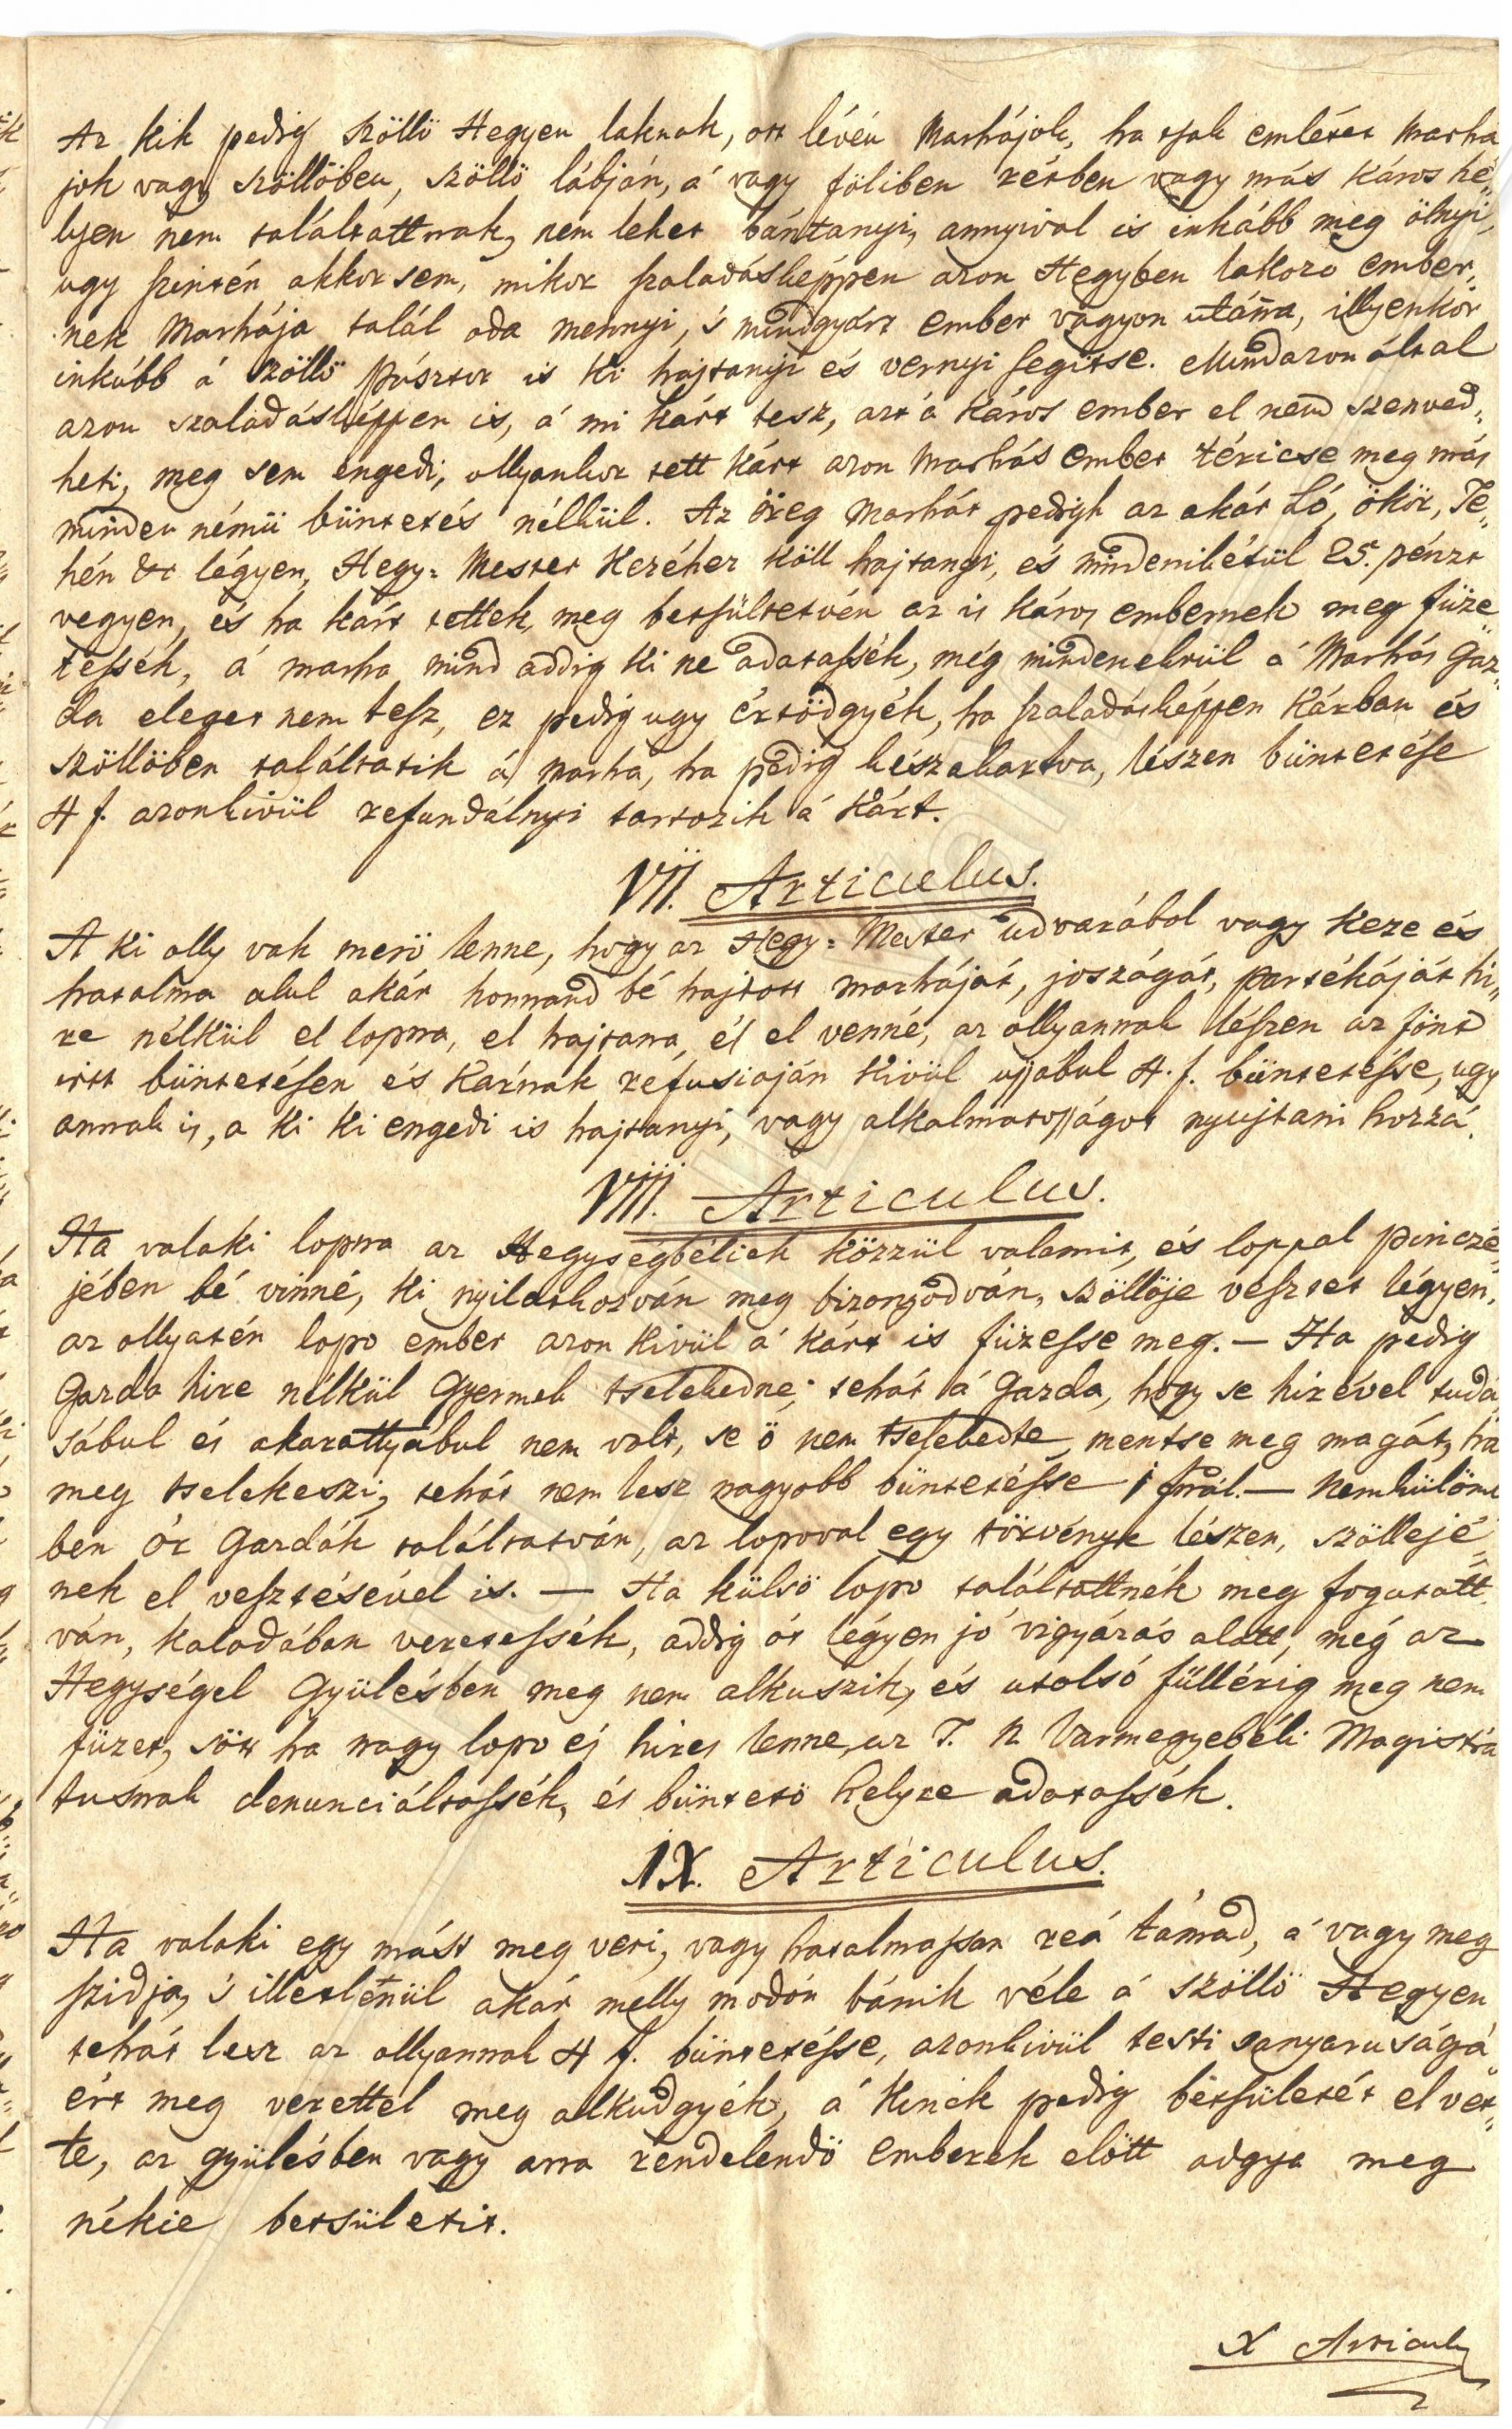 Az kik pedig Szöllö Hegyen laknak, ott lévén Marhájok, ha tsak emlétet Marhá
jok vagy szöllöben, szöllö lábján, á vagy föliben rétben vagy más káros hé„
lyen nem találtattnak, nem lehet bántanyi, annyival is inkább meg ölnyi,
ugy szintén akkor sem, mikor szaladásképpen azon Hegyben lakozo ember„
nek Marhája talál oda mennyi, 's mindgyárt ember vagyon utánna, illyenkor
inkább á szöllö pásztor is ki hajtanyi és vernyi segitse. Mindazonáltal
azon szaladásképpen is, á mi kárt tesz, azt á káros ember el nem szenved„
heti, meg sem engedi, ollyankor tett kárt azon Marhás ember téricse meg más
minden némü büntetés nélkül. Az öreg Marhát pedigh az akár Ló, ökör, Te„
hén &c légyen, Hegy= Mester Kezéhez köll hajtanyi, és mindenikétül 25. pénzt
vegyen, és ha kárt tettek, meg betsültetvén az is káros embernek meg füze„
tessék, á marha mind addig ki ne adatassék, még mindenekrül á Marhás Gaz„
da eleget nem tesz, ez pedig ugy értödgyék, ha szaladásképpen kárban és
szöllöben találtatik á marha, ha pedig készakartva, lészen büntetése
4 f. azonkivül refundálnyi tartozik á kárt.
VII. Articulus.
A ki olly vak merö lenne, hogy az Hegy= Mester udvarábol vagy keze és
hatalma alul akár honnand bé hajtott marháját, joszágát, partékáját hi„
re nélkül el lopna, el hajtana, és el venné, az ollyannak lészen az fönt
irtt büntetésen és Kárnak refusioján kivül ujjabul 4. f. büntetésse, ugy
annak is, a ki ki engedi is hajtanyi, vagy alkalmatosságot nyujtani hozzá.
VIII. Articulus.
Ha valaki lopna az Hegységbéliek közzül valamit, és loppal pinczé„
jében bé vinné, ki nyilatkozván meg bizonyodván, szöllöje vesztet légyen,
az ollyatén lopo ember azon kivül á kárt is füzesse meg. — Ha pedig
Gazda hire nélkül Gyermek tselekedne; tehát á Gazda, hogy se hirével tudá
sábul és akarattyábul nem volt, se ö nem tselekedte, mentse meg magát, ha
meg tselekeszi, tehát nem lesz nagyobb büntetésse 1 frnál. — Nemkülöm
ben Ór Gazdák találtatván, az lopoval egy törvényk lészen, szöllejé„
nek el vesztésével is. — Ha külsö lopo találtattnék meg fogatatt„
ván, kalodában veretessék, addig ót légyen jó vigyázás alatt, még az
Hegységel Gyülésben meg nem alkuszik, és utolsó füllérig meg nem
füzet, sött ha nagy lopo és hires lenne, az T. N. Varmegyebéli Magistrá
tusnak denunciáltassék, és büntetö helyre adatassék.
IX. Articulus.
Ha valaki egy mást meg veri, vagy hatalmassan reá támad, á vagy meg
szidja, 's illetlenül akár melly modón bánik véle á szöllö Hegyen
tehát lesz az ollyannak 4 f. büntetésse, azonkivül testi sanyaruságá„
ért meg verettel meg alkudgyék, á kinek pedig betsületét el vet„
te, az gyülésben vagy arra rendelendö emberek elött adgya meg
nékie betsületit.
X Articulus